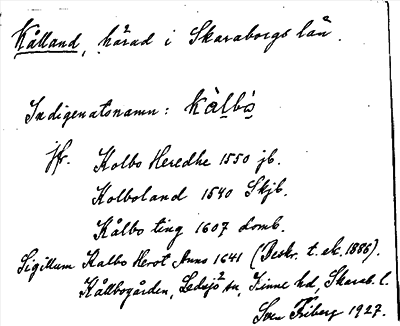 Kålland, härad i Skaraborgs län.
Indigenatsnamn: Kàlbṡ
Jfr. Kolbo Heredhe 1550 jb.
Kolboland 1540 Skjb.
Kålbo ting 1607 domb.
Sigillum Kalbo Herot Anno 1641 (Beskr. t. ek. 1885).
Kållbogården, Ledsjö sn, Kinne hd, Skarab. l.
Sven Friberg 1927.